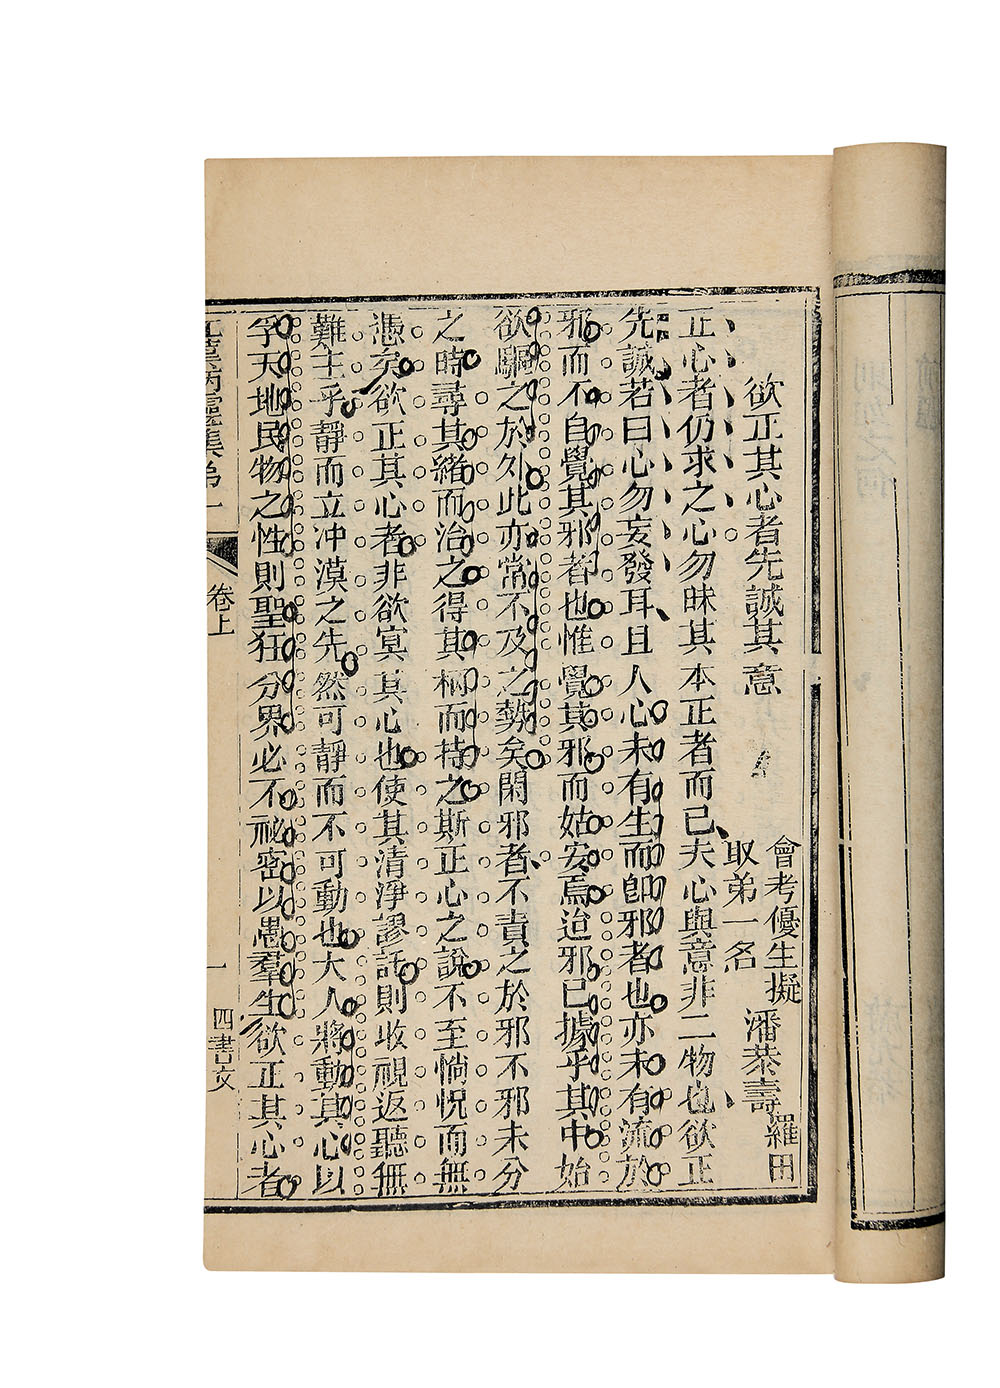 欲正其心者先誠其意
會考優生擬
取弟一名
潘恭壽
羅田
正心者仍求之心勿昧其本正者而已夫心與意非二物也欲正
先誠若曰心勿妄發耳且人心未有生而卽邪者也亦未有流於
邪而不自覺其邪者也惟覺其邪而姑安焉迨邪已據乎其中始
欲驅之於外此亦常不及之勢矣閑邪者不責之於邪不邪未分
之時尋其緒而治之得其柄而持之斯正心之說不至惝怳而無
憑矣欲正其心者非欲冥其心也使其清淨謬託則收視返聽無
難主乎靜而立沖漠之先然可靜而不可動也大人將動其心以
孚天地民物之性則聖狂分界必不祕密以愚羣生欲正其心者
集弟一
卷上
一
四書文